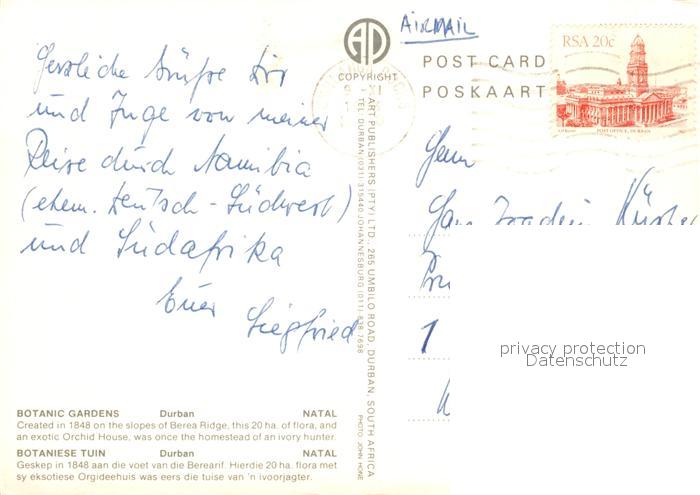 Herzliche Grüße Dir
und Inge von meiner
Reise durch Namibia
(ehem. Deutsch-Südwest)
und Südafrika
Euer
Siegfried
BOTANIC GARDENS Durban NATAL
Created in 1848 on the slopes of Berea Ridge, this 20 ha. of flora, and
an exotic Orchid House, was once the homestead of an ivory hunter.
BOTANIESE TUIN Durban NATAL
Geskep in 1848 aan die voet van die Berearif. Hierdie 20 ha. flora met
sy eksotiese Orgideehuis was eers die tuise van 'n ivoorjagter.
AD
COPYRIGHT
ART PUBLISHERS (PTY) LTD., 265 UMBILO ROAD, DURBAN, SOUTH AFRICA
TEL: DURBAN (031) 315440 JOHANNESBURG (011) 838-7698
PHOTO: JOHN HONE
AIRMAIL
POST CARD
POSKAART
RSA 20c
POST OFFICE, DURBAN
Herrn
1
privacy protection
Datenschutz